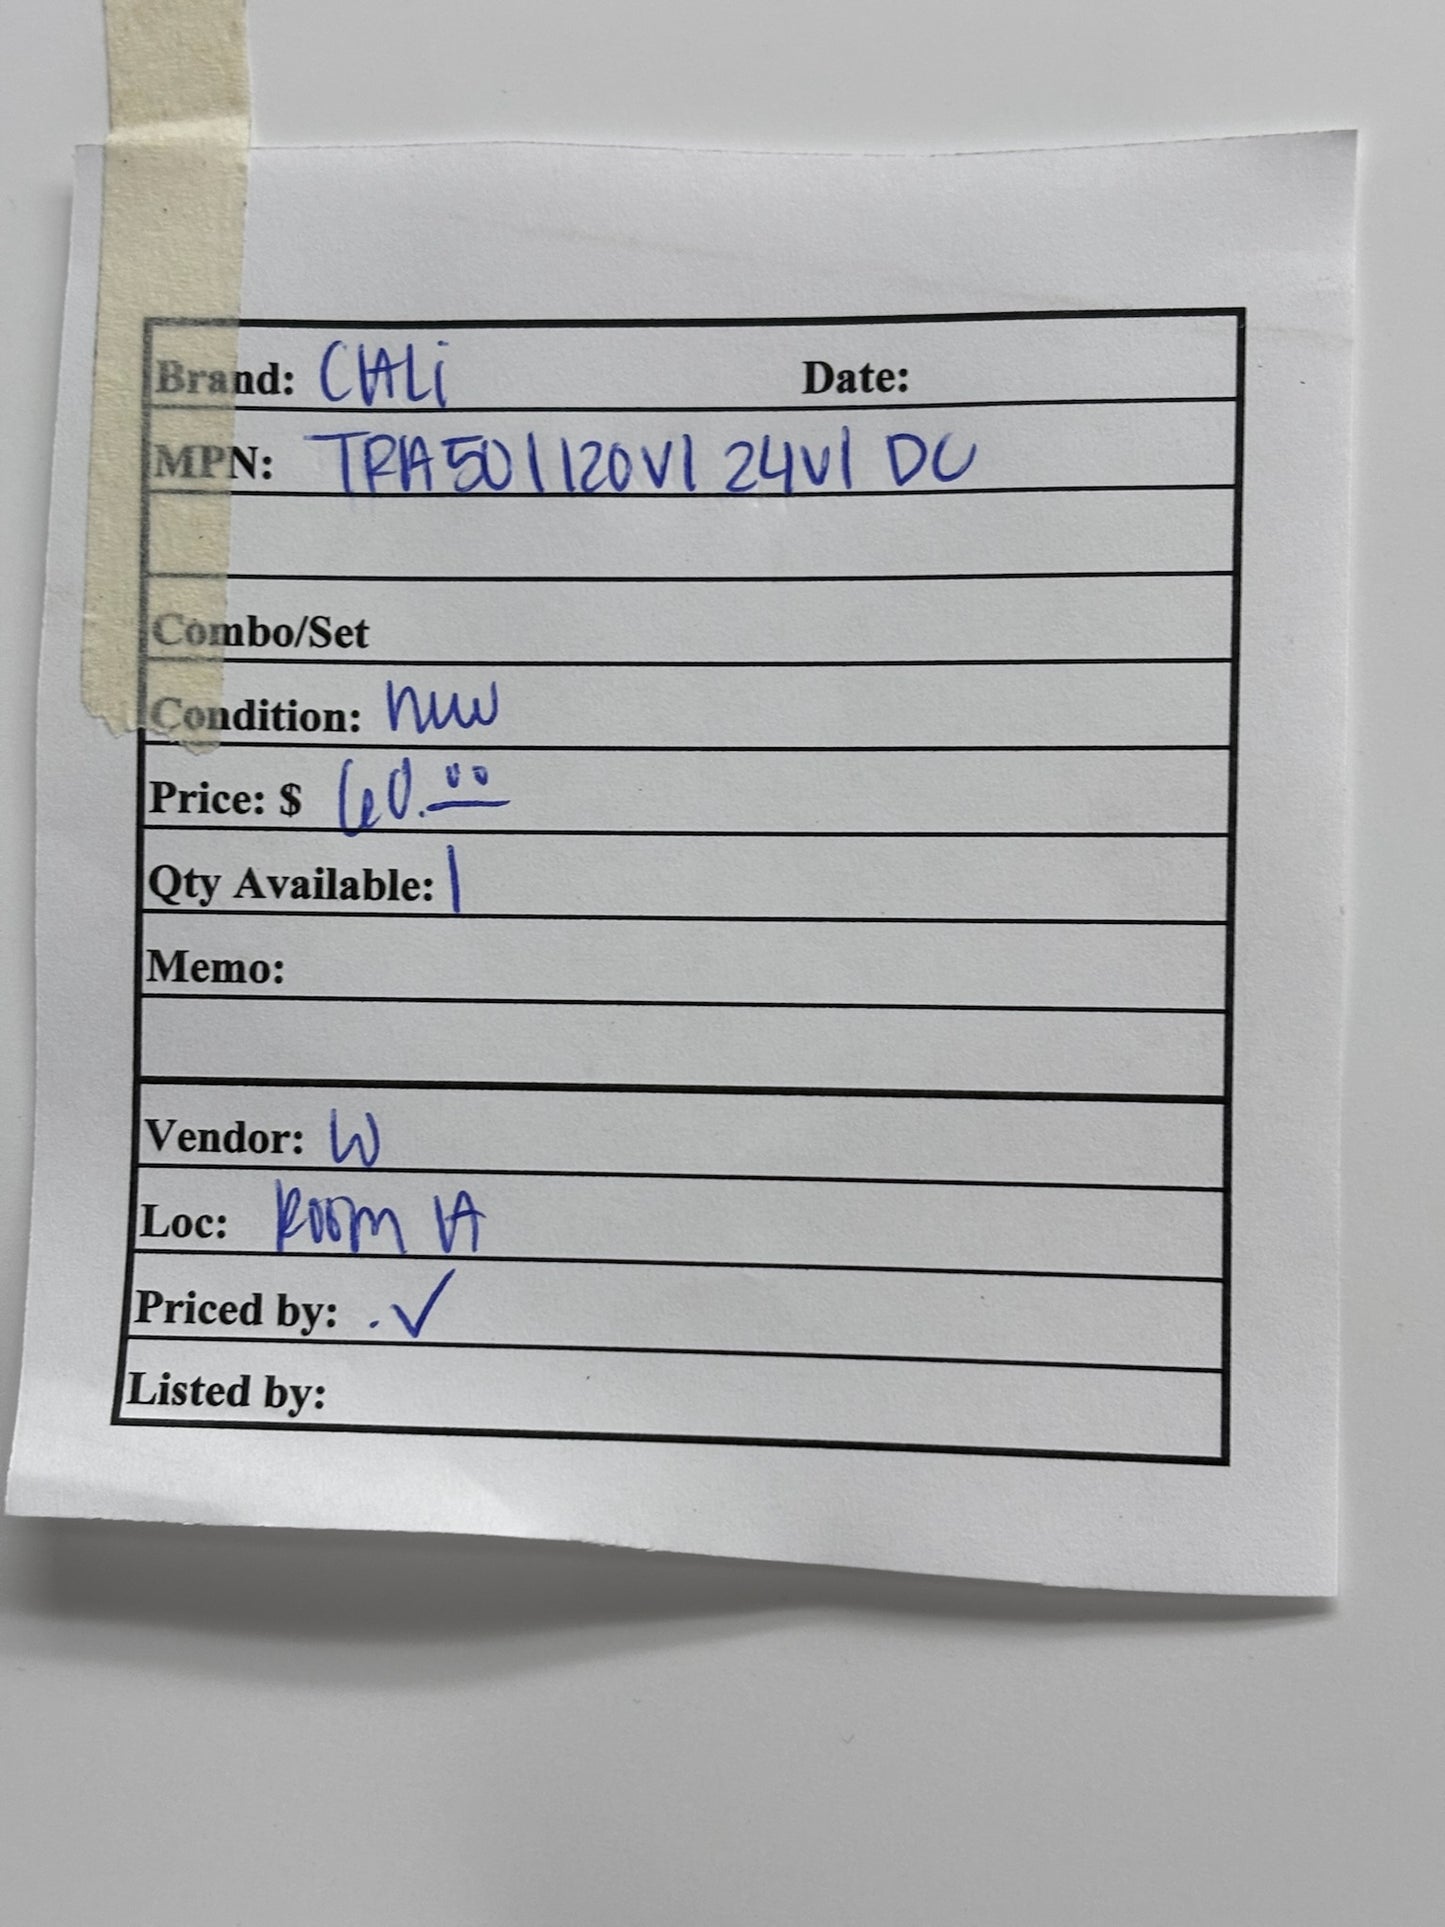 Brand: CALi Date:
MPN: TRA50|120V|24V| DC
Combo/Set
Condition: new
Price: $ 60.00
Qty Available: 1
Memo:
Vendor: W
Loc: Room 1A
Priced by: .✓
Listed by: